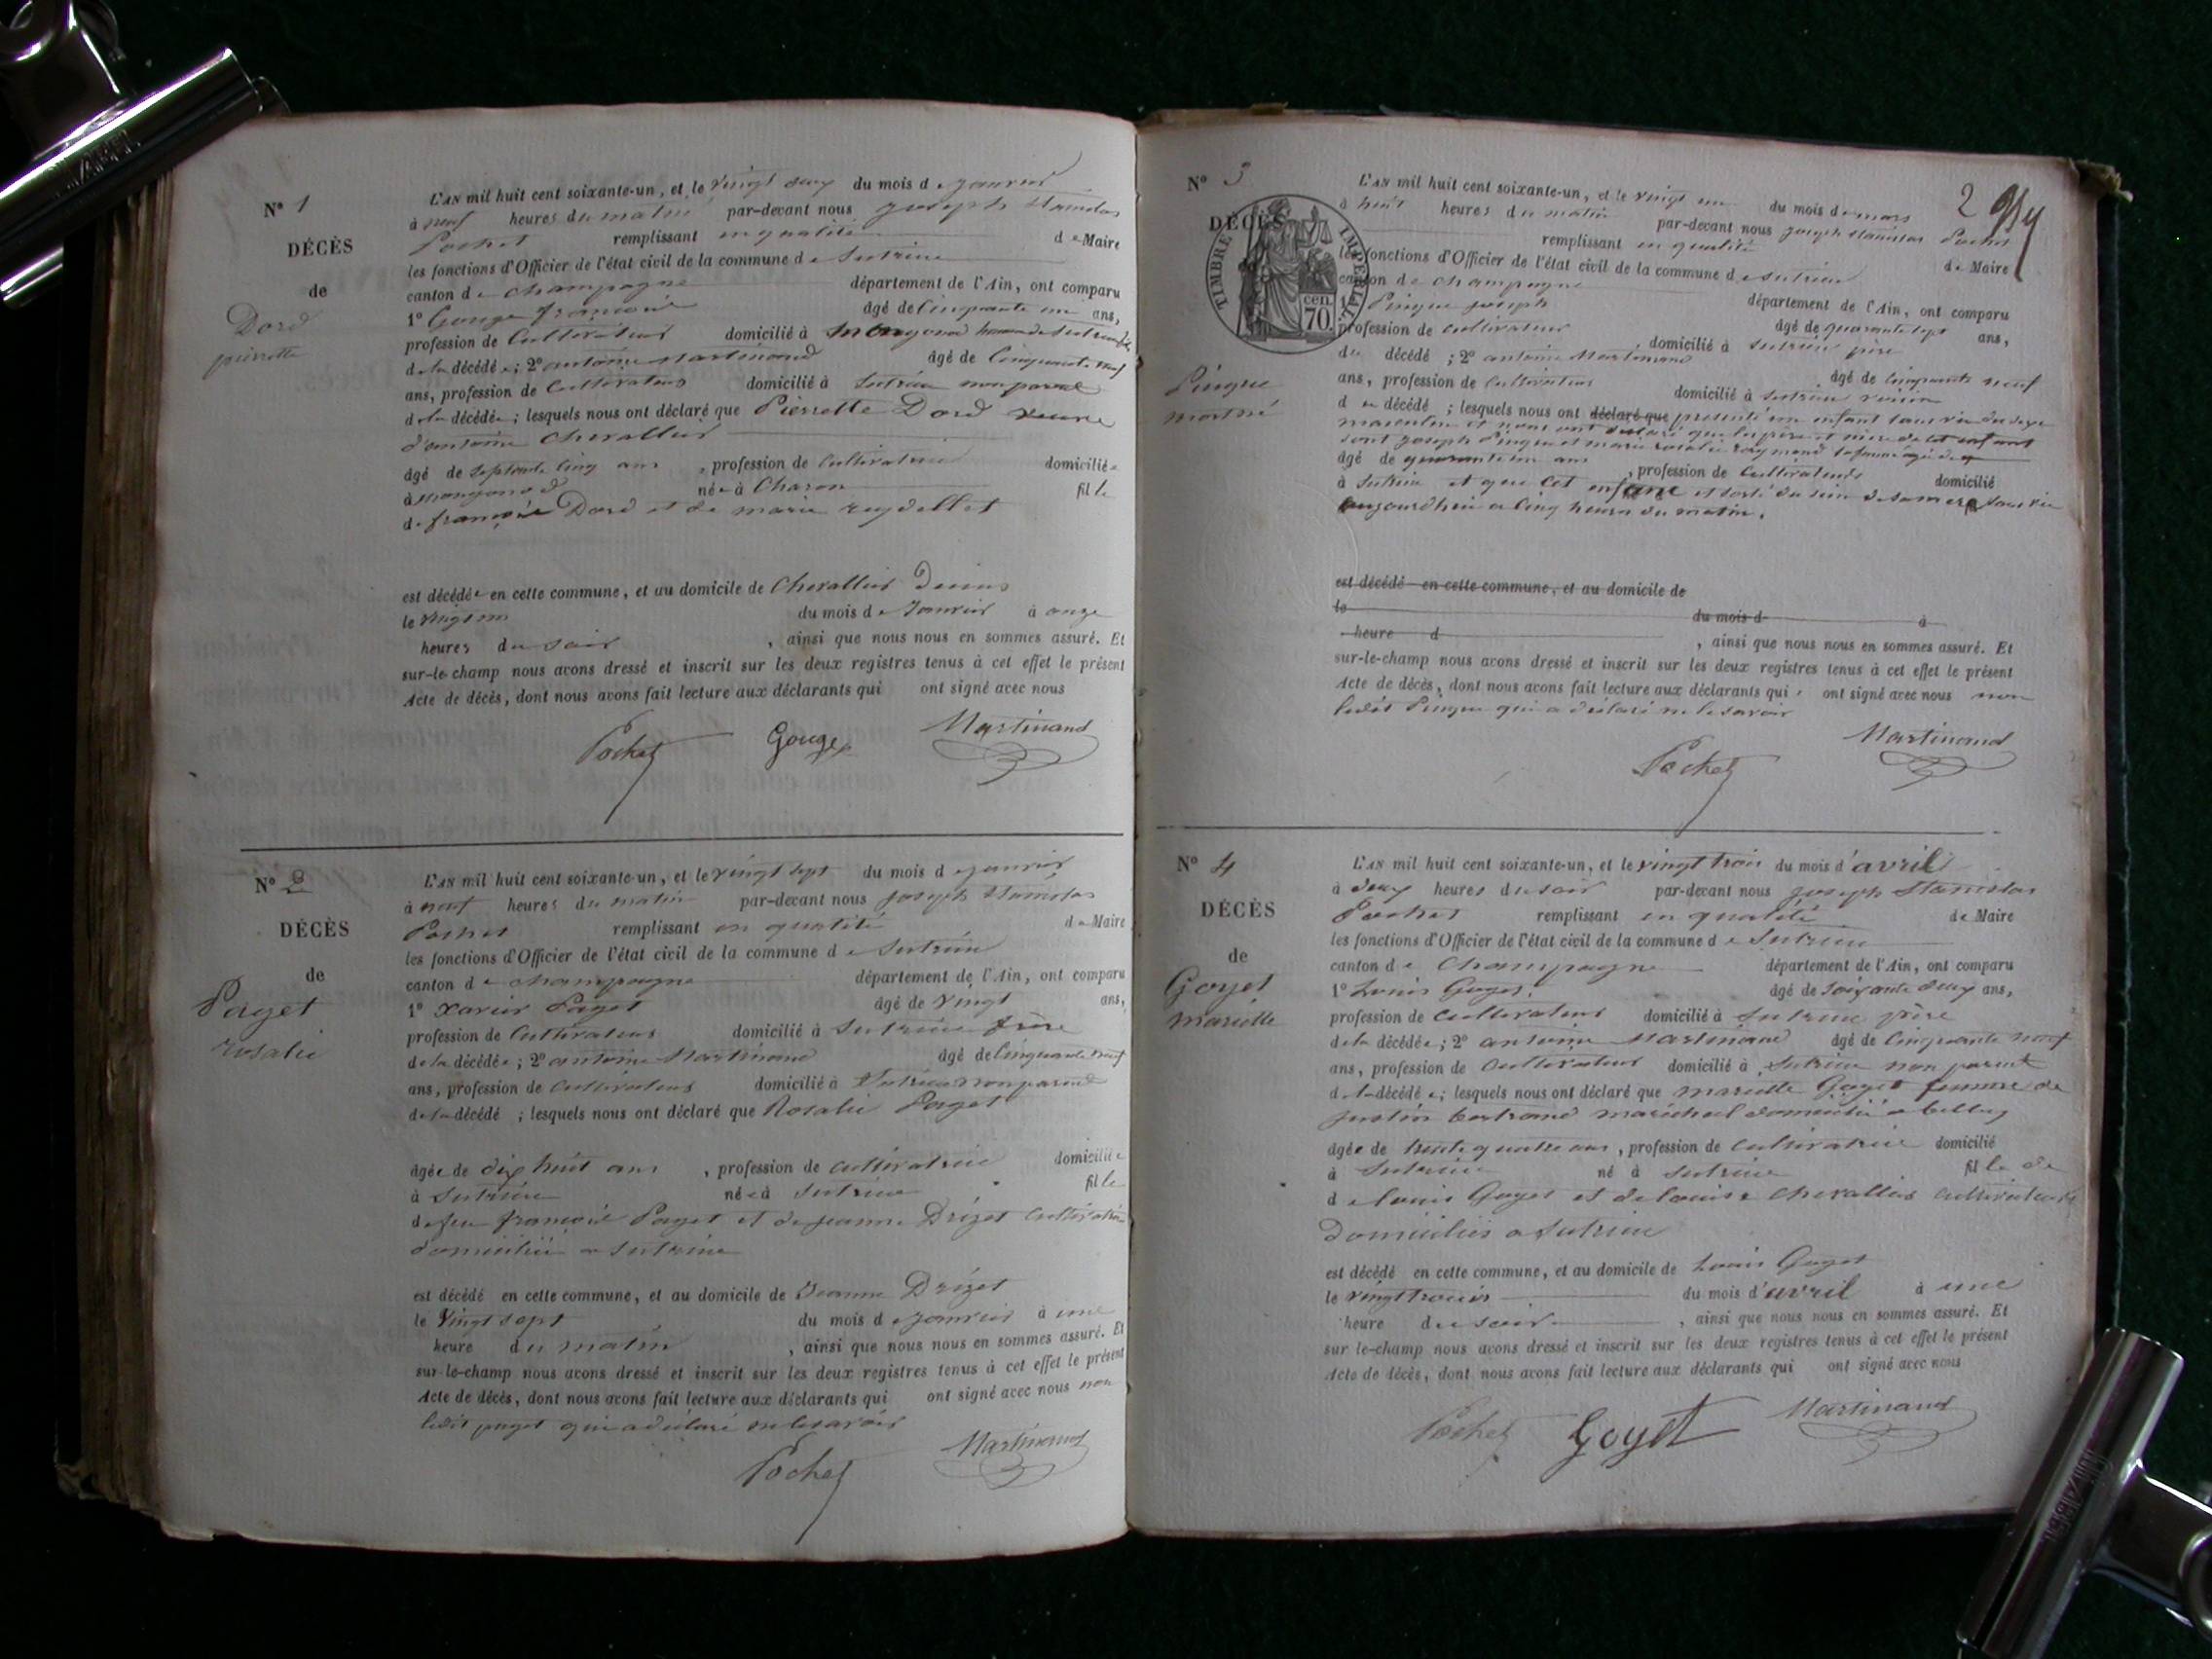 N° 1
DÉCÈS
de
Dord
pierrette
L'AN mil huit cent soixante-un, et le vingt deux du mois de janvier
à neuf heures du matin par-devant nous joseph Stanislas
Pochet remplissant en qualité de Maire
les fonctions d'Officier de l'état civil de la commune de Sutrieu
canton de champagne département de l'Ain, ont comparu
1° Gouge françois âgé de Cinquante un ans,
profession de Cultivateur domicilié à
de la décédée; 2° antoine Martinand âgé de Cinquante neuf
ans, profession de Cultivateur domicilié à Sutrieu non parent
de la décédée; lesquels nous ont déclaré que Pierrette Dord veuve
d'antoine Chevallier
âgé de septante cinq ans, profession de Cultivatrice domiciliée
à mongonod née à Charon fille
de françois Dord et de marie reydellet
est décédée en cette commune, et au domicile de Chevallier
le vingt un du mois de Janvier à onze
heures du soir, ainsi que nous nous en sommes assuré. Et
sur-le-champ nous avons dressé et inscrit sur les deux registres tenus à cet effet le présent
Acte de décès, dont nous avons fait lecture aux déclarants qui ont signé avec nous
Pochet Gouge Martinand
N° 2
DÉCÈS
de
Paget
rosalie
L'AN mil huit cent soixante-un, et le vingt sept du mois de janvier
à neuf heures du matin par-devant nous joseph Stanislas
Pochet remplissant en qualité de Maire
les fonctions d'Officier de l'état civil de la commune de Sutrieu
canton de champagne département de l'Ain, ont comparu
1° Xavier Paget âgé de vingt ans,
profession de Cultivateur domicilié à Sutrieu frère
de la décédée; 2° antoine Martinand âgé de Cinquante neuf
ans, profession de Cultivateur domicilié à Sutrieu non parent
de la décédé; lesquels nous ont déclaré que Rosalie Paget
âgée de dix huit ans, profession de cultivatrice domiciliée
à Sutrieu née à Sutrieu fille
de feu françois Paget et de jeanne Drizet Cultivatrice
domiciliée a Sutrieu
est décédé en cette commune, et au domicile de Jeanne Drizet
le vingt sept du mois de Janvier à une
heure du matin, ainsi que nous nous en sommes assuré. Et
sur-le-champ nous avons dressé et inscrit sur les deux registres tenus à cet effet le présent
Acte de décès, dont nous avons fait lecture aux déclarants qui ont signé avec nous non
ledit paget qui a déclaré ne le savoir
Pochet Martinand
2
N° 3
DÉCÈS
TIMBRE IMPÉRIAL
cen. 70
Pingue
mort né
L'AN mil huit cent soixante-un, et le vingt un du mois de mars
à huit heures du matin par-devant nous joseph stanislas Pochet
remplissant en qualité de Maire
les fonctions d'Officier de l'état civil de la commune de Sutrieu
canton de champagne département de l'Ain, ont comparu
1° Pingue joseph âgé de quarante sept ans,
profession de cultivateur domicilié à Sutrieu père
du décédé; 2° antoine Martinand âgé de cinquante neuf
ans, profession de Cultivateur domicilié à Sutrieu voisin
du décédé; lesquels nous ont déclaré que présenté un enfant sans vie du sexe
masculin et nous ont déclaré que les père et mère de cet enfant
sont joseph Pingue et marie rosalie raymond sa femme agée de
âgé de quarante un ans, profession de Cultivateurs domicilié
à Sutrieu et que cet enfant est sorti du sein de sa mere sans vie
aujourdhui a cinq heures du matin.
est décédé en cette commune, et au domicile de
le du mois d à
heure d, ainsi que nous nous en sommes assuré. Et
sur-le-champ nous avons dressé et inscrit sur les deux registres tenus à cet effet le présent
Acte de décès, dont nous avons fait lecture aux déclarants qui ont signé avec nous non
ledit Pingue qui a déclaré ne le savoir
Pochet Martinand
N° 4
DÉCÈS
de
Goyet
mariette
L'AN mil huit cent soixante-un, et le vingt trois du mois d'avril
à deux heures du soir par-devant nous joseph Stanislas
Pochet remplissant en qualité de Maire
les fonctions d'Officier de l'état civil de la commune de Sutrieu
canton de Champagne département de l'Ain, ont comparu
1° Louis Goyet. âgé de soixante deux ans,
profession de cultivateur domicilié à Sutrieu père
de la décédée; 2° antoine Martinand âgé de Cinquante neuf
ans, profession de Cultivateur domicilié à Sutrieu non parent
de la décédée; lesquels nous ont déclaré que mariette Goyet femme de
justin bertrand maréchal domicilié a belley
âgée de trente quatre ans, profession de Cultivatrice domicilié
à Sutrieu né à Sutrieu fille de
de louis Goyet et de louise chevallier cultivateurs
domiciliés a Sutrieu
est décédé en cette commune, et au domicile de Louis Goyet
le vingt trois du mois d'avril à une
heure du soir, ainsi que nous nous en sommes assuré. Et
sur le-champ nous avons dressé et inscrit sur les deux registres tenus à cet effet le présent
Acte de décès, dont nous avons fait lecture aux déclarants qui ont signé avec nous
Pochet Goyet Martinand